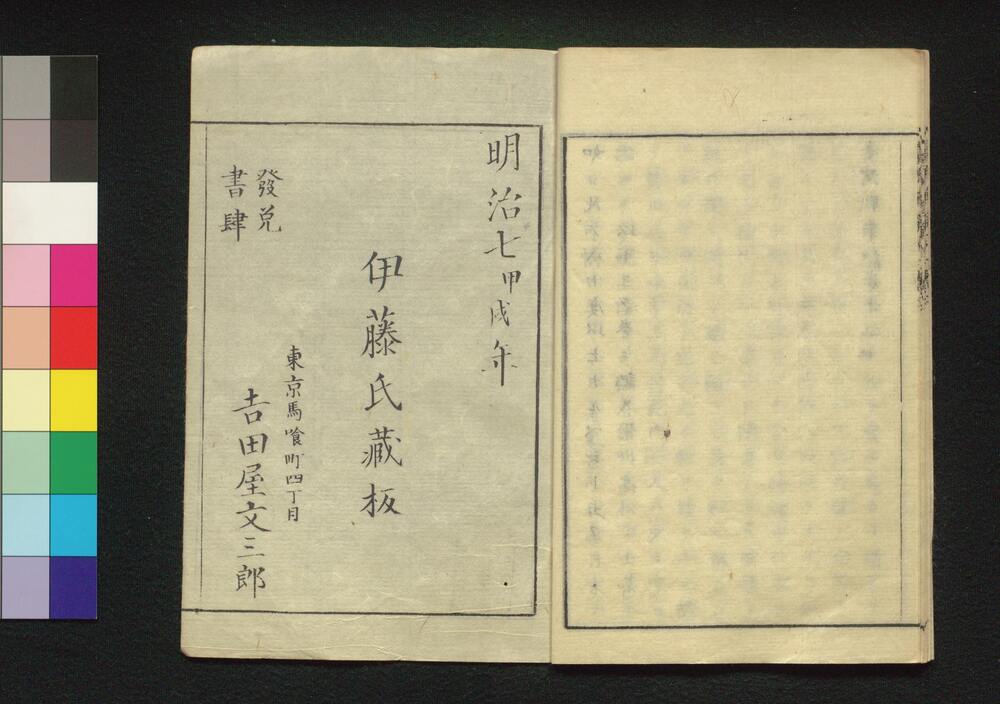 明治七甲戌年
伊藤氏藏板
東京馬喰町四丁目
發兌
書肆
吉田屋文三郎